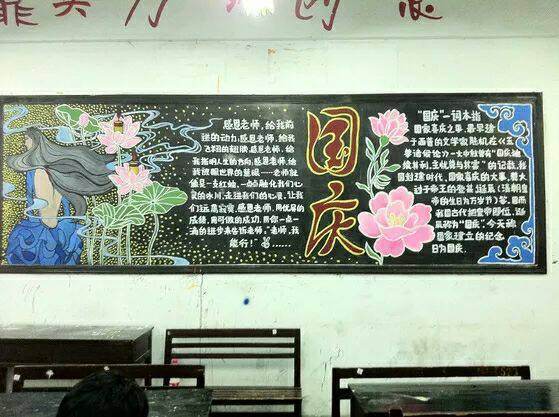 感恩老师,给我前
进的动力,感恩老师,给我
飞翔的翅膀,感恩老师,给
我指明人生的方向,感恩老师,给
我放眼世界的慧眼——老师就
像是一支红烛,一点点融化我们心
灵的冰川,走进我们的心灵,让我
们远离寂寞,感恩老师,用优异的
成绩,用可信的成功,用你一点一
滴的进步来告诉老师,"老师,我
能行!"
国庆
"国庆"一词本指
国家喜庆之事,最早见
于西晋的文学家陆机在《五
等诸侯论》一文中就曾有"国庆独
飨其利,主忧莫与其害"的记载,我
国封建时代,国家喜庆的大事,莫大
过于帝王的登基,诞辰(清朝皇
帝的生日为万岁节)等,因而
我国古代把皇帝即位、诞
辰称为"国庆",今天称
国家建立的纪念
日为国庆.